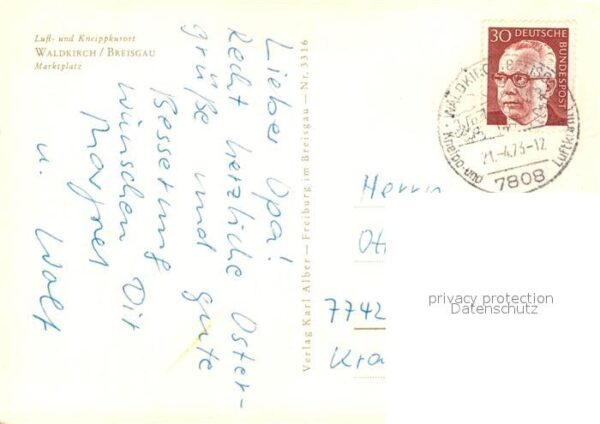 Luft- und Kneippkurort
WALDKIRCH / BREISGAU
Marktplatz
Lieber Opa!
Recht herzliche Oster-
grüße und gute
Besserung
wünschen Dir
Margret
u. Wolf
Verlag Karl Alber — Freiburg im Breisgau — Nr. 3316
30 DEUTSCHE BUNDESPOST
WALDKIRCH
21.-4.73-12
Kneipp-und Luftkurort
7808
Herrn
Ot
7742
Kra
privacy protection
Datenschutz